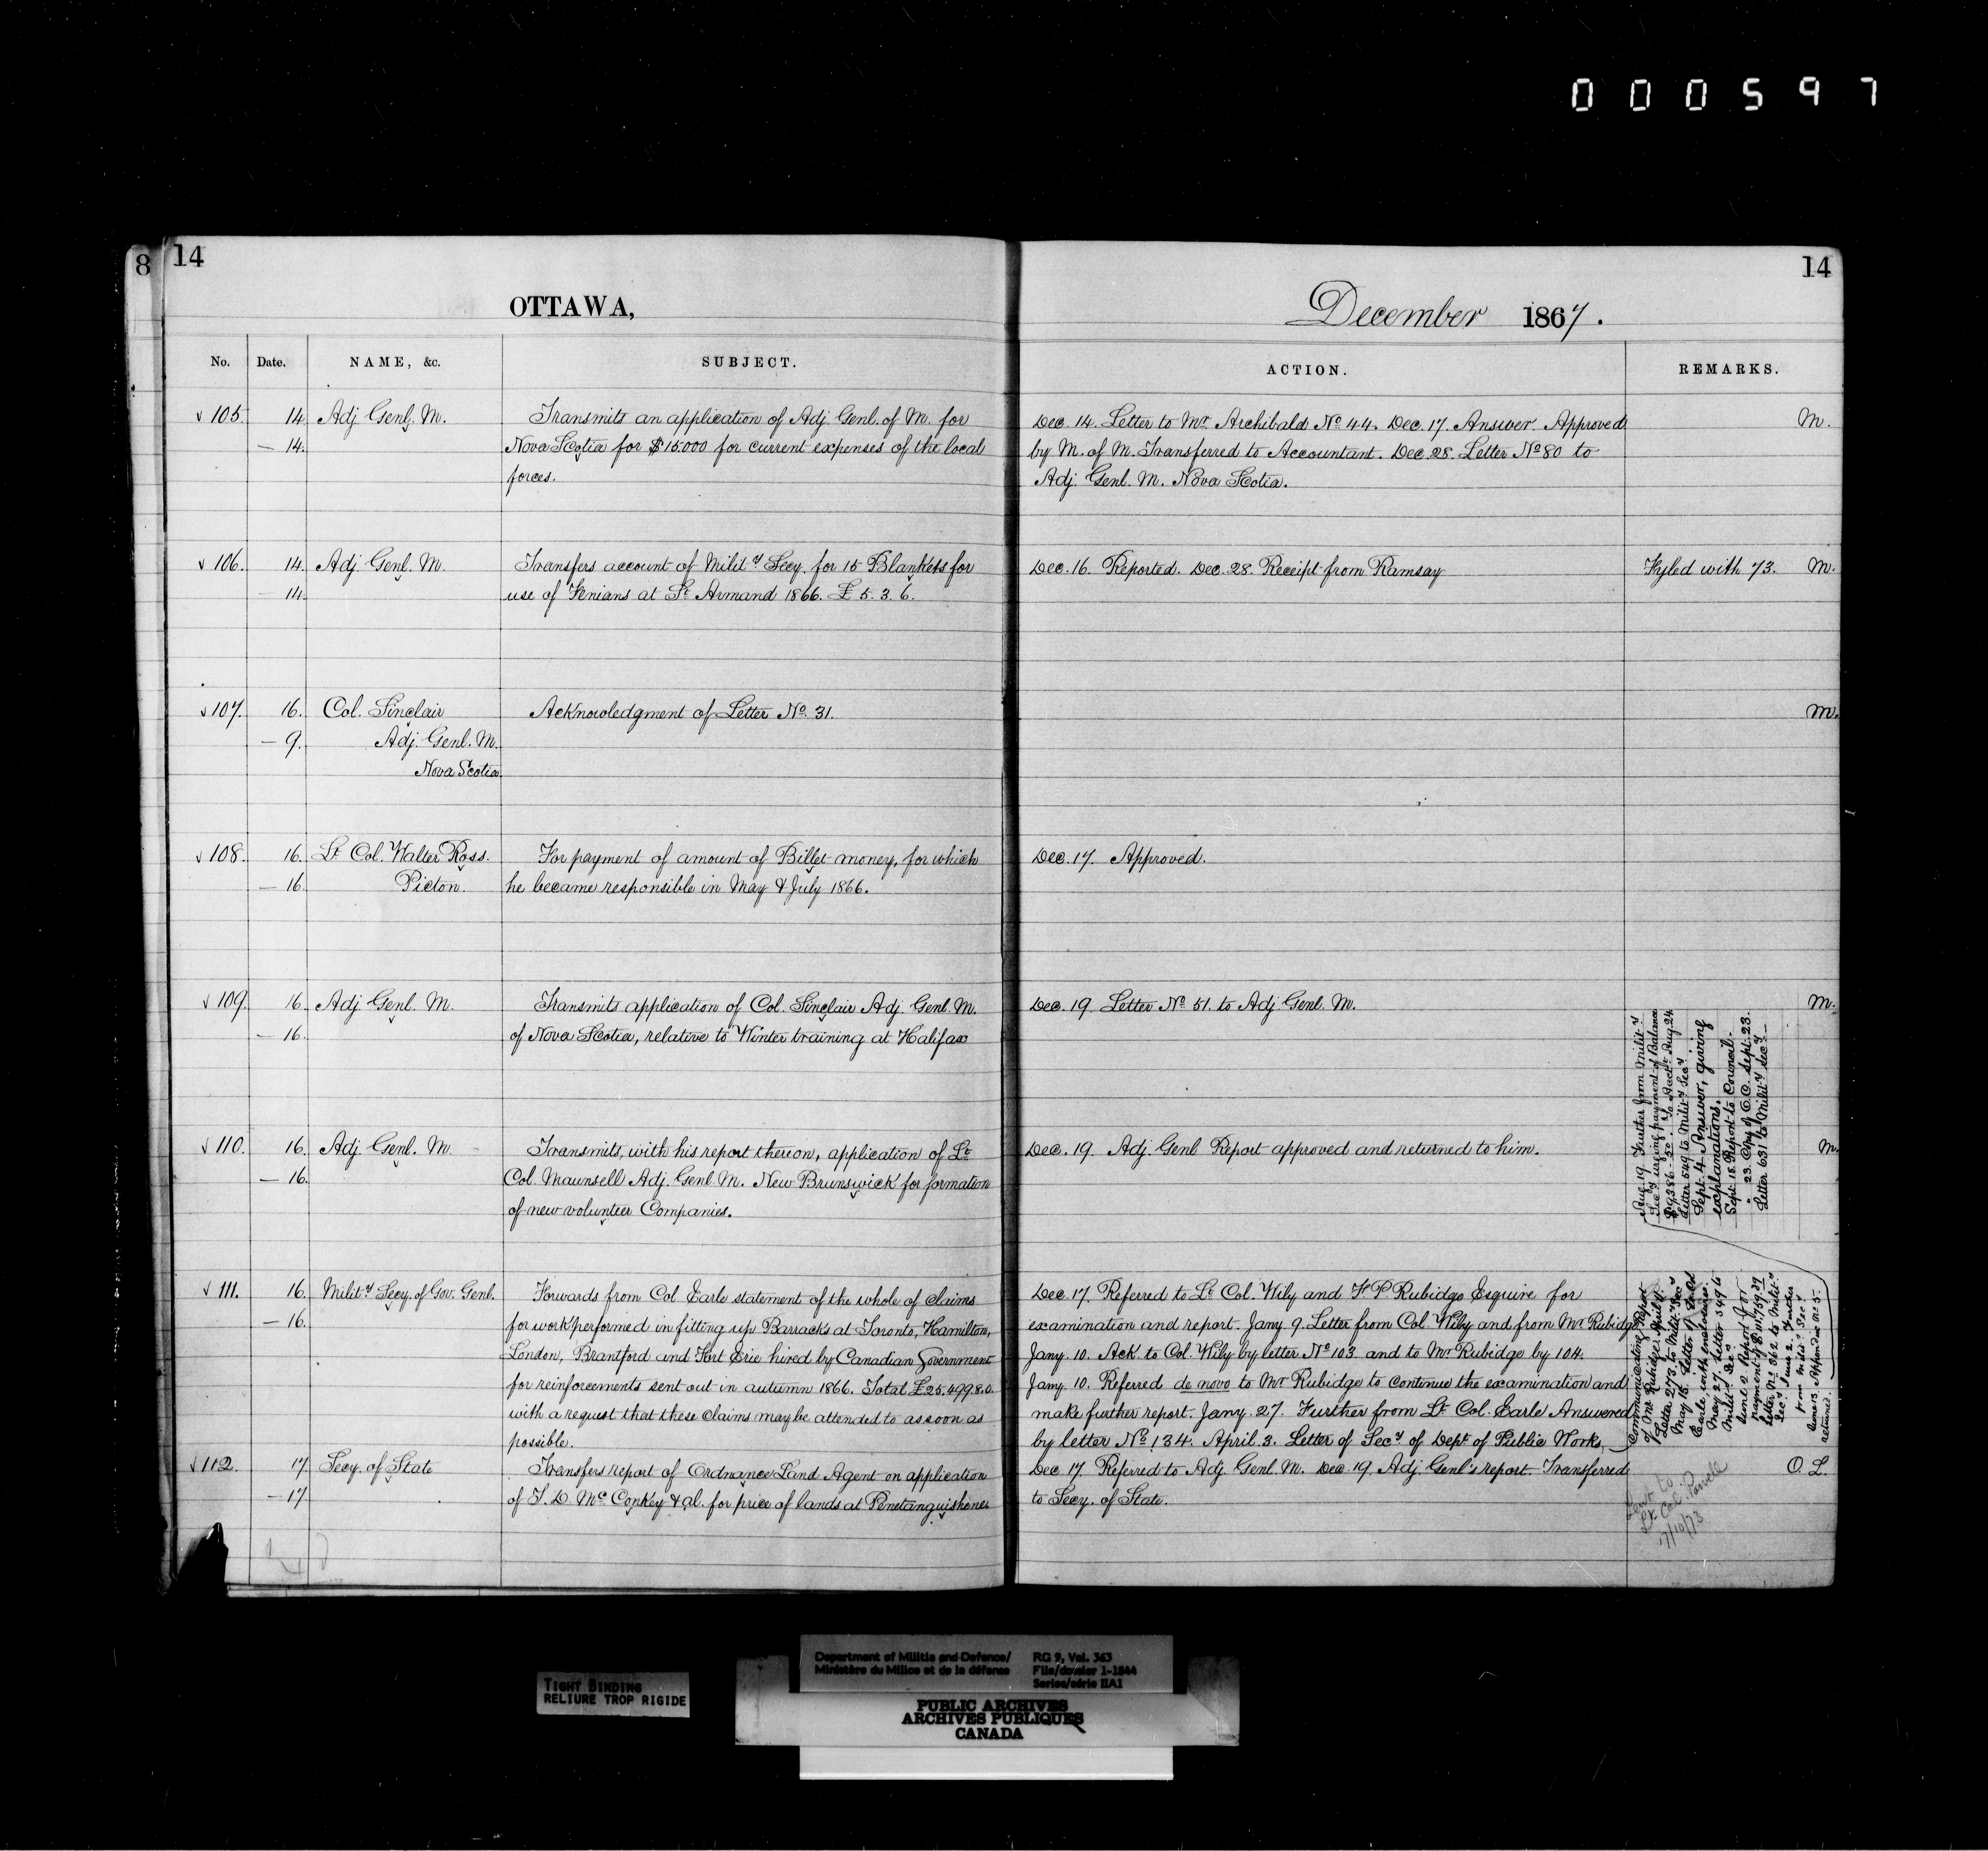 000597
8 14
14
OTTAWA,
December 1867.
No. Date. NAME, &c. SUBJECT.
ACTION. REMARKS.
√ 105. 14. Adj. Genl. M. Transmits an application of Adj. Genl. of M. for
— 14. Nova Scotia for $15.000 for current expenses of the local
forces.
Dec. 14. Letter to Mr. Archibald No. 44. Dec. 17. Answer Approved M.
by M. of M. Transferred to Accountant. Dec. 28. Letter No. 80 to
Adj. Genl. M. Nova Scotia.
√ 106. 14. Adj. Genl. M. Transfers account of Mility. Secy. for 15 Blankets for
14. use of Fenians at St. Armand 1866. £ 5. 3. 6.
Dec. 16. Reported. Dec. 28. Receipt from Ramsay Fyled with 73. M.
√ 107. 16. Col. Sinclair Acknowledgment of Letter No. 31.
— 9. Adj. Genl. M.
Nova Scotia
M.
√ 108. 16. Lt. Col. Walter Ross. For payment of amount of Billet money, for which
— 16. Picton. he became responsible in May & July 1866.
Dec. 17. Approved.
√ 109. 16. Adj. Genl. M. Transmits application of Col. Sinclair Adj. Genl. M.
— 16. of Nova Scotia, relative to Winter training at Halifax
Dec. 19. Letter No. 51. to Adj. Genl. M. M.
√ 110. 16. Adj. Genl. M. Transmits, with his report thereon, application of Lt.
— 16. Col. Maunsell Adj. Genl. M. New Brunswick for formation
of new volunteer Companies.
Dec. 19. Adj. Genl Report approved and returned to him. M.
√ 111. 16. Mility. Secy. of Gov. Genl. Forwards from Col. Earle statement of the whole of claims
— 16. for work performed in fitting up Barracks at Toronto, Hamilton,
London, Brantford and Fort Erie hired by Canadian Government
for reinforcements sent out in autumn 1866. Total £25,499.8.0.
with a request that these claims may be attended to as soon as
possible.
Dec. 17. Referred to Lt. Col. Wily and F P Rubidge Esquire for
examination and report. Jany. 9. Letter from Col. Wily and from Mr Rubidge
Jany. 10. Ack. to Col. Wily by letter No. 103. and to Mr Rubidge by 104.
Jany. 10. Referred de novo to Mr Rubidge to continue the examination and
make further report. Jany. 27. Further from Lt. Col. Earle Answered
by letter No. 134. April. 3. Letter of Secy. of Dept. of Public Works
Communicating Report
of Mr Rubidge. April
Letter 273. to Milit. Secy
May 15. Letter of Col
Earle, with enclosures.
May 27. Letter 349 to
Milit. Secy.
June 2. Report for
payment of $111,759.39
letter No. 362 to Milit.
Secy. June 2. Further
from Milit. Secy.
returned.
Aug. 19. Further from Milit.
Secy urging payment of Balance
Letter 549 to Mility Secy
Sept. 4. Answer, giving
explanations.
Sept. 18. Report to Council.
" 23. Copy of O.C. Sept. 23.
Letter 631 to Mility Secy
√ 112. 17. Secy. of State Transfers report of Ordnance Land Agent on application
— 17. of T. D. McConkey & al. for price of lands at Penetanguishene
Dec. 17. Referred to Adj. Genl. M. Dec. 19. Adj. Genl's report. Transferred O. L.
to Secy. of State.
Sent to
Lt Col. Powell
17/10/73
TIGHT BINDING
RELIURE TROP RIGIDE
Department of Militia and Defence/
Ministère du Milice et de la défense
RG 9, Vol. 363
File/dossier 1-1844
Series/série IIA1
PUBLIC ARCHIVES
ARCHIVES PUBLIQUES
CANADA